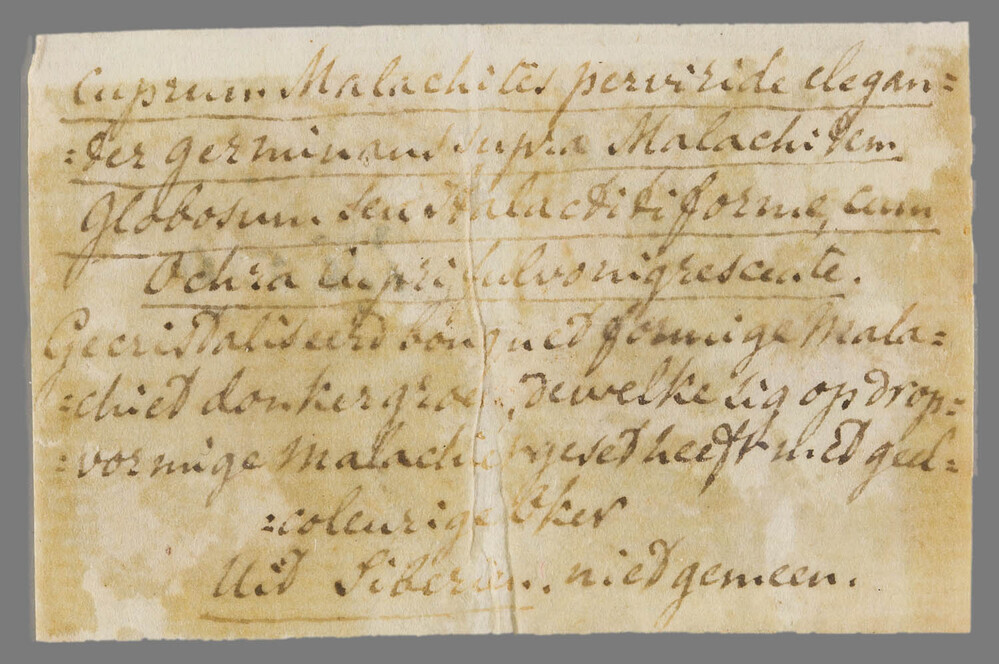 Cuprum Malachites perviride elegan=
=ter germinans supra Malachitem
Globosum seu Stalactitiforme, cum
Ochra Cupri fulvonigrescente.
Gecristaliseerd bouquetformige Mala=
=chiet donkergroen, dewelke sig op drop=
=vormige Malachiet geset heeft met geel=
=coleurige Oker
Uit Siberien. niet gemeen.